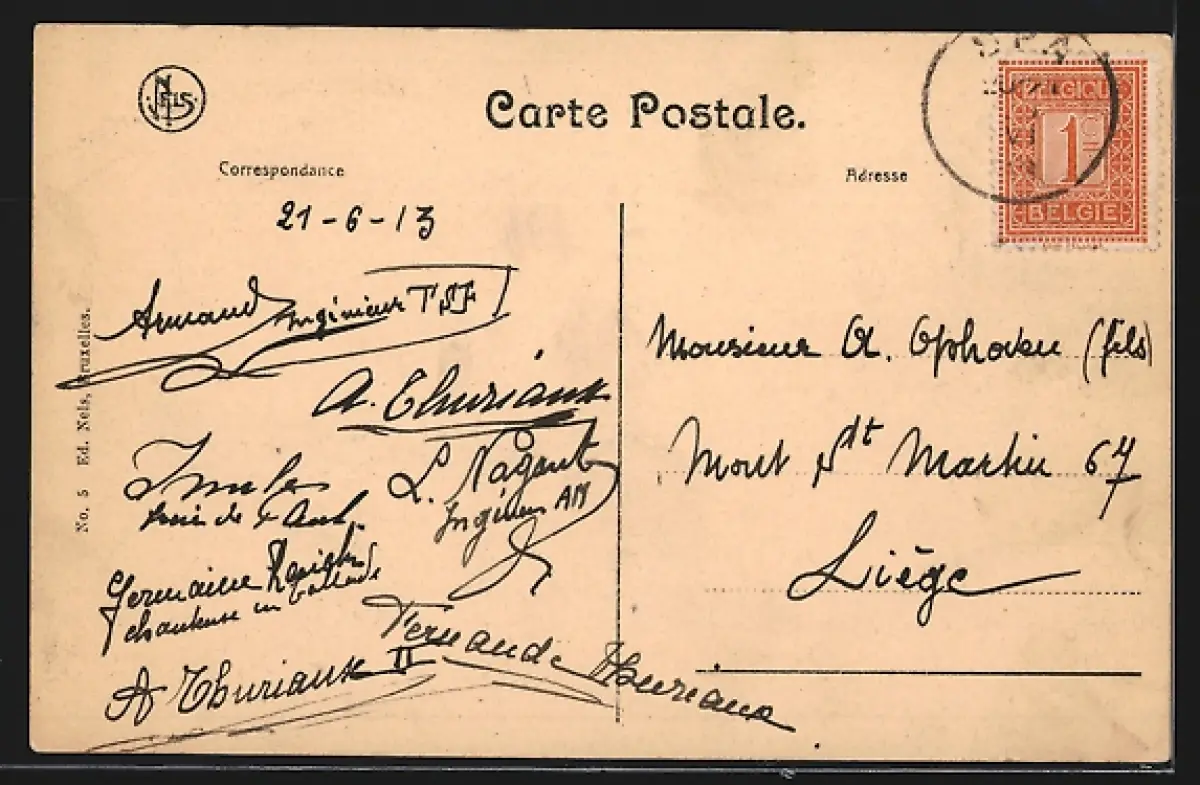 NELS
Carte Postale.
SPA
BELGIQUE
1
BELGIE
Correspondance
Adresse
21-6-13
Armand Ingénieur TSF
A. Thuriaux
L. Nagant
Ingénieur AM
Germaine
chanteuse en ballade
A Thuriaux II
Fernande Thuriaux
No. 5 Ed. Nels, Bruxelles.
Monsieur A. Ophoven (fils)
Mont St Martin 67
Liège